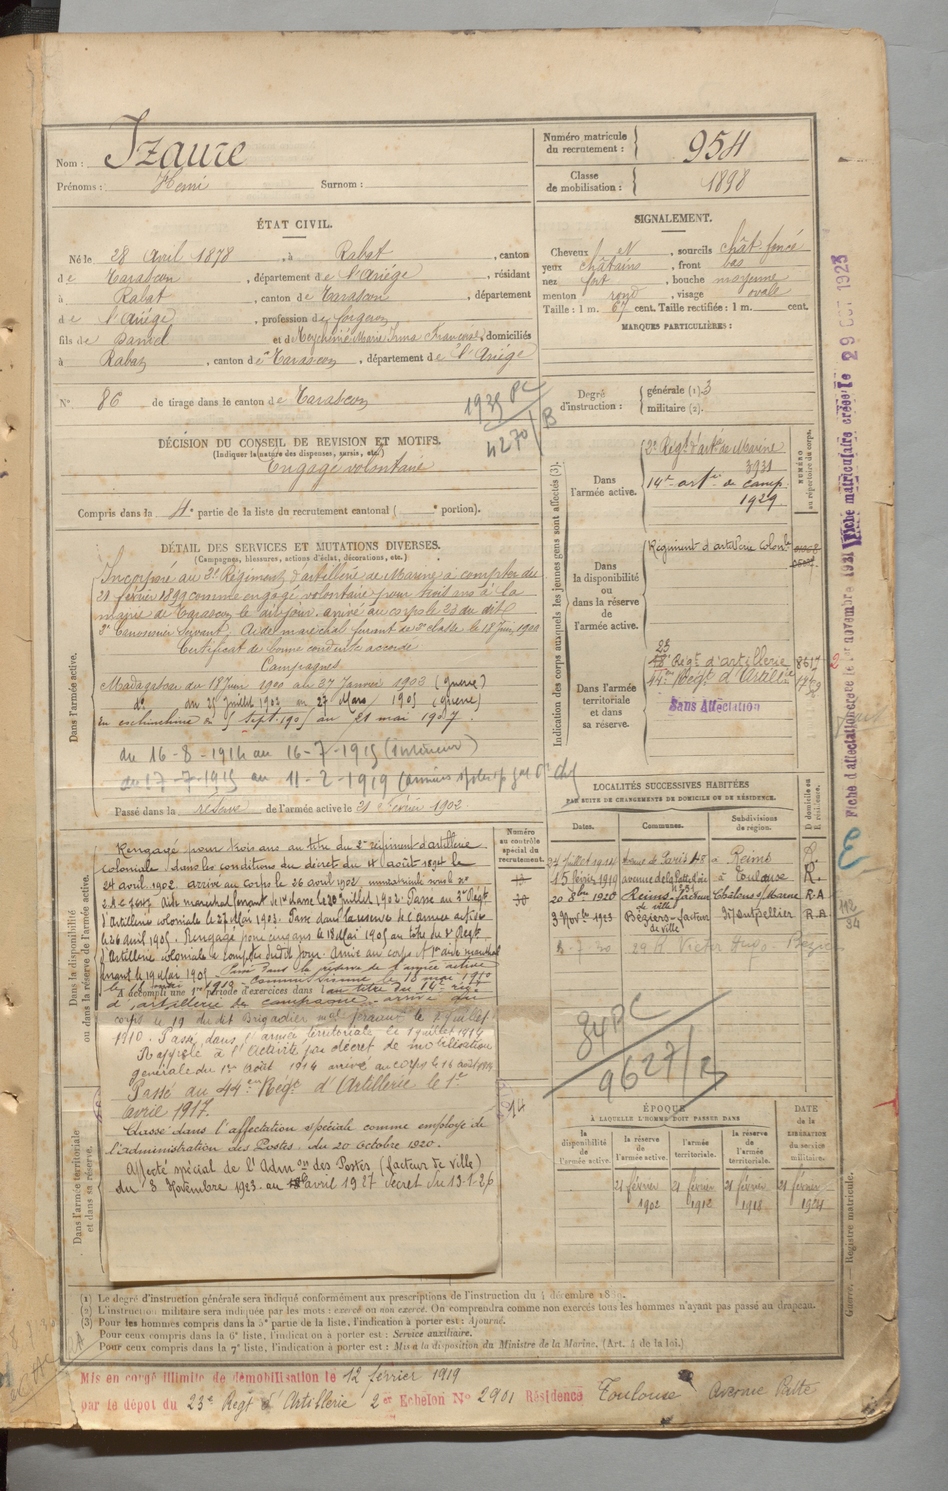 Nom : Izaure
Prénoms : Henri Surnom :
Numéro matricule du recrutement : 954
Classe de mobilisation : 1898
ÉTAT CIVIL.
Né le 28 Avril 1878, à Rabat, canton
de Tarascon, département de l'Ariége, résidant
à Rabat, canton de Tarascon, département
de l'Ariége, profession de forgeron
fils de Daniel et de Marie Irma Françoise, domiciliés
à Rabat, canton de Tarascon, département de l'Ariége
N° 86 de tirage dans le canton de Tarascon
SIGNALEMENT.
Cheveux N, sourcils chât. foncé
yeux châtains, front bas
nez fort, bouche moyenne
menton rond, visage ovale
Taille : 1 m. 67 cent. Taille rectifiée : 1 m. cent.
MARQUES PARTICULIÈRES :
Degré d'instruction : générale (1) 3
militaire (2).
1935 PC
4270/B
DÉCISION DU CONSEIL DE REVISION ET MOTIFS.
(Indiquer la nature des dispenses, sursis, etc.)
Engagé volontaire
Compris dans la 4e partie de la liste du recrutement cantonal ( e portion).
DÉTAIL DES SERVICES ET MUTATIONS DIVERSES.
(Campagnes, blessures, actions d'éclat, décorations, etc.)
Dans l'armée active.
Incorporé au 2e Régiment d'artillerie de Marine à compter du
21 février 1899 comme engagé volontaire pour trois ans à la
mairie de Tarascon le dit jour. arrivé au corps le 23 du dit
2e Canonnier Servant. Aide maréchal ferrant de 2e classe le 18 Juin 1900
Certificat de bonne conduite accordé
Campagnes
Madagascar du 18 Juin 1900 au 27 Janvier 1903 (guerre)
do du 25 Juillet 1903 au 23 Mars 1905 (guerre)
en Sept. 1905 au 21 mai 1907.
du 16-8-1914 au 16-7-1915 (intérieur)
du 17-7-1915 au 11-2-1919 (armées
Passé dans la réserve de l'armée active le 21 février 1902
Dans la disponibilité ou dans la réserve de l'armée active.
Rengagé pour trois ans au titre du 2e régiment d'artillerie
coloniale dans les conditions du décret du 4 août 1894 le
24 avril 1902. arrivé au corps le 26 avril 1902, immatriculé sous le no
Aide maréchal ferrant de 1re classe le 20 Juillet 1902. Passé au Regt
d'Artillerie coloniale le 27 Mai 1903. Passé dans la réserve de l'armée active
le 26 avril 1905. Rengagé pour cinq ans le 18 Mai 1905 au titre du Regt
d'Artillerie coloniale à compter du dit jour. Arrivé au corps et 1er aide maréchal
ferrant le 19 Mai 1905. Passé dans la réserve de l'armée active
le 18 mai 1910
A accompli une 1re période d'exercices dans l au titre du 14e régt
d'artillerie de campagne - arrivé au
corps le 19 du dit Brigadier mal ferrant le 7 juillet
1910. Passé dans l'armée territoriale le 1 juillet 1914
Rappelé à l'activité par décret de mobilisation
générale du 1er Août 1914 arrivé au corps le 16 août 1914
Passé au 44ème Régt d'Artillerie le 1er
avril 1917.
Classé dans l'affectation spéciale comme employé de
l'administration des Postes du 20 octobre 1920.
Affecté spécial de l'Admon des Postes (facteur de ville)
du 8 Novembre 1923 au avril 1927 décret du 13-1-26
Dans l'armée territoriale et dans sa réserve.
Numéro au contrôle spécial du recrutement.
Indication des corps auxquels les jeunes gens sont affectés (3).
NUMÉRO au répertoire du corps.
Dans l'armée active.
2e Régt d'artie de Marine
3931
14e artie de camp.
1929
Dans la disponibilité ou dans la réserve de l'armée active.
Régiment d'artillerie colonle
Dans l'armée territoriale et dans sa réserve.
23
Régt d'artillerie 8517
44e Régt d'Artillerie
Sans Affectation
LOCALITÉS SUCCESSIVES HABITÉES
PAR SUITE DE CHANGEMENTS DE DOMICILE OU DE RÉSIDENCE.
Dates. Communes. Subdivisions de région. D domicile ou R résidence.
24 Juillet 1911 Avenue de Paris 48 à Reims D.
15 février 1919 avenue de la Patte d'oie à Toulouse R.
20 8bre 1920 Reims facteur de ville Châlons s/Marne R.A
3 Novbre 1923 Béziers - facteur de ville Montpellier R.A
-7-30 29 R Victor Hugo - Bézie
84 PC
9627/B
ÉPOQUE
À LAQUELLE L'HOMME DOIT PASSER DANS
la disponibilité de l'armée active. la réserve de l'armée active. l'armée territoriale. la réserve de l'armée territoriale.
DATE de la LIBÉRATION du service militaire.
21 février 1902 21 février 1912 21 février 1918 21 février 1924
(1) Le degré d'instruction générale sera indiqué conformément aux prescriptions de l'instruction du 4 décembre 1889.
(2) L'instruction militaire sera indiquée par les mots : exercé ou non exercé. On comprendra comme non exercés tous les hommes n'ayant pas passé au drapeau.
(3) Pour les hommes compris dans la 5e partie de la liste, l'indication à porter est : Ajourné.
Pour ceux compris dans la 6e liste, l'indication à porter est : Service auxiliaire.
Pour ceux compris dans la 7e liste, l'indication à porter est : Mis à la disposition du Ministre de la Marine. (Art. 4 de la loi.)
Mis en congé illimité de démobilisation le 12 février 1919
par le dépôt du 23e Régt d'Artillerie 2er Echelon No 2901 Résidence Toulouse Avenue Patte
Fiche d'affectation créée le 1er novembre 1921
Fiche matriculaire créée le 29 OCT 1923
Guerre. — Registre matricule.